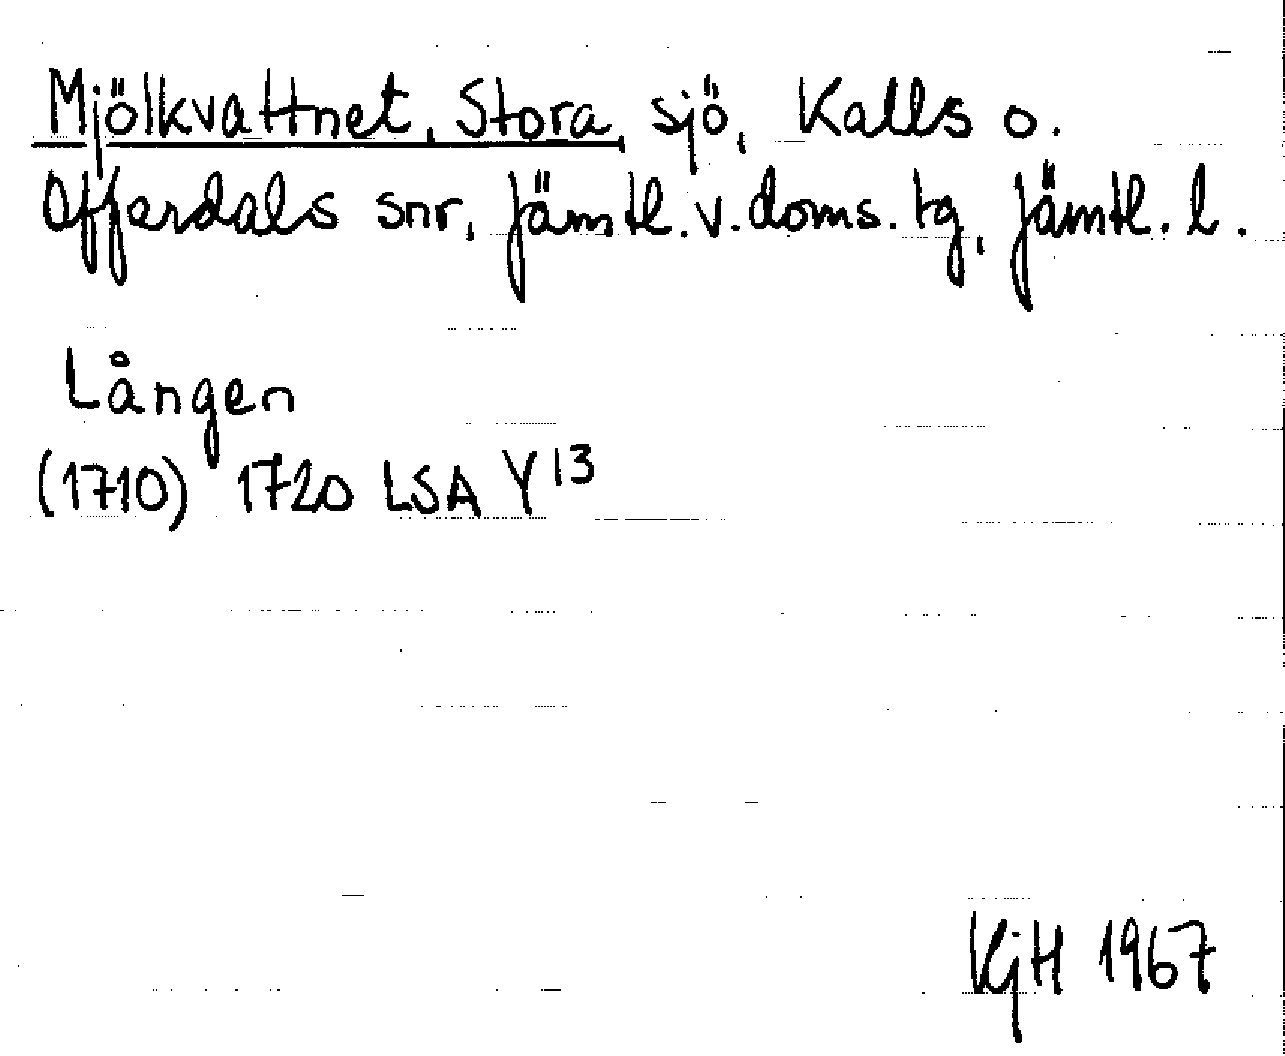 Mjölkvattnet, Stora, sjö, Kalls o.
Offerdals snr, Jämtl. v. doms. tg, Jämtl. l.
Lången
(1710) 1720 LSA Y13
KjH 1967